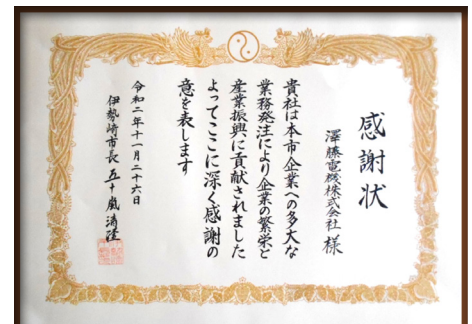 感謝状
澤藤電機株式会社 様
貴社は本市企業への多大な
業務発注により企業の繁栄と
産業振興に貢献されました
よってここに深く感謝の
意を表します
令和二年十一月二十六日
伊勢崎市長 五十嵐清隆